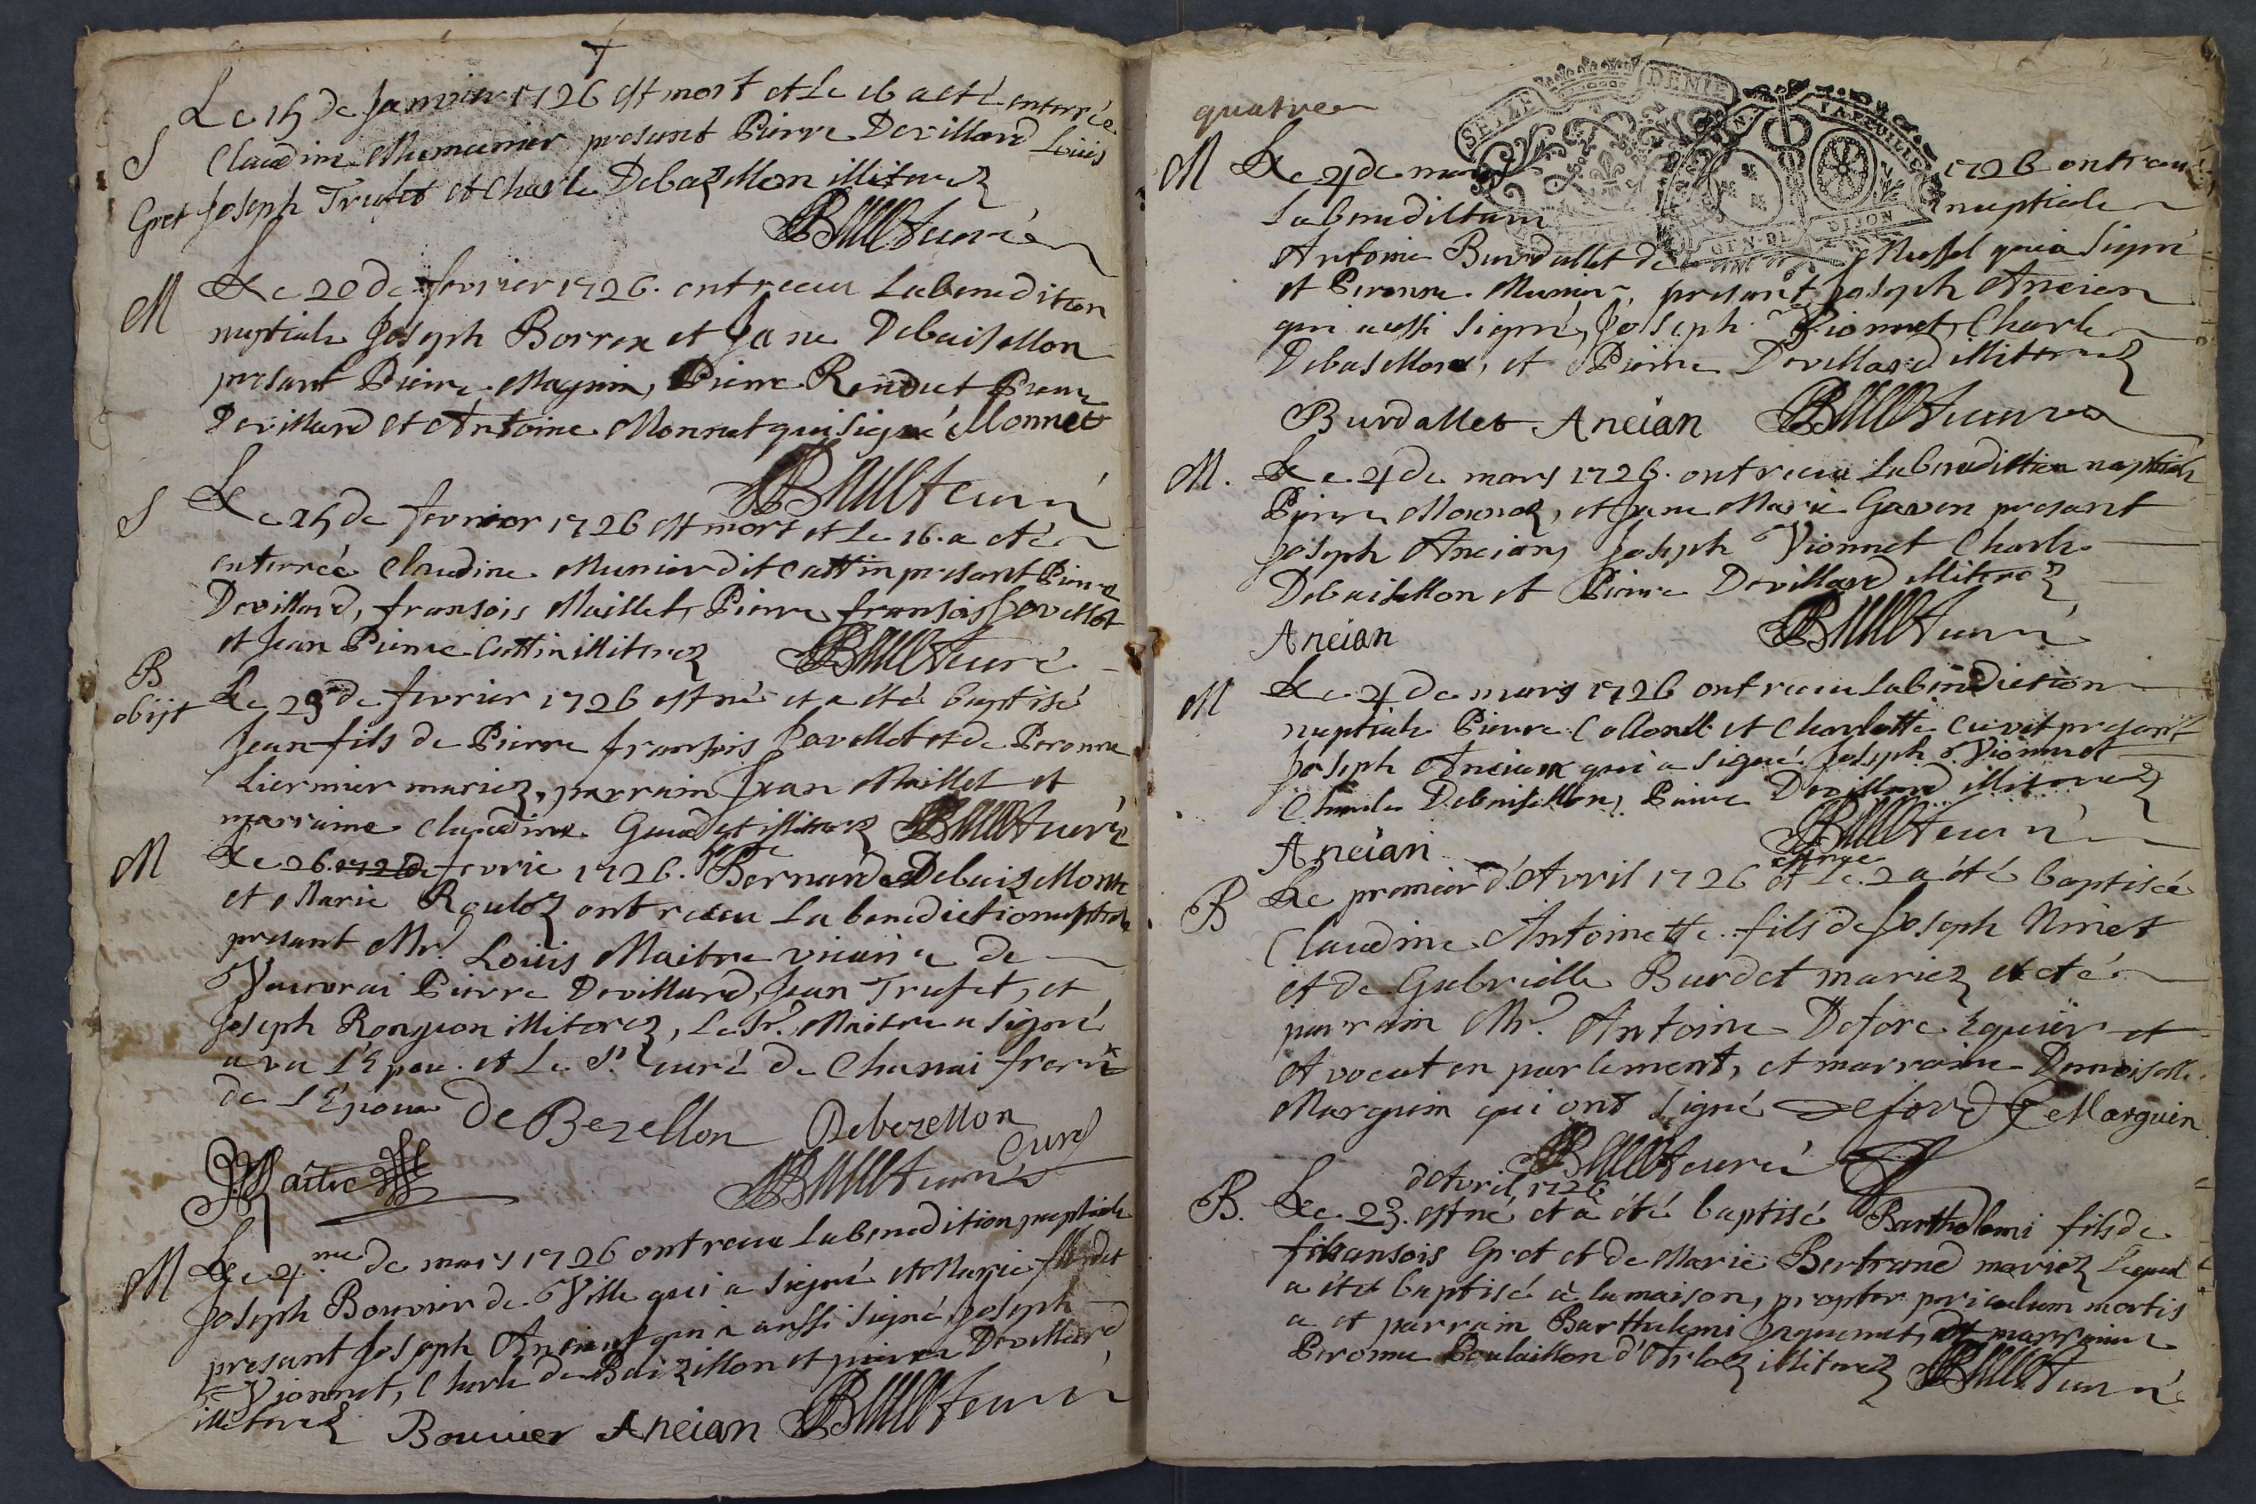 S
Le 15 de Janvier 1726 est mort et Le 16 a eté enterrée
Claudine presant Pierre Devillard Louis
Gret Joseph Trufet et Charle Debazellon illiterez
curé
M
Le 20 de fevrier 1726. ont receu La benedition
nuptiale Joseph Borren et Jane Debaisellon
presant Pierre Magnin, Pierre Rendu et Pierre
Devillard et Antoine Monnet qui signé Monnet
curé
S
Le 25 de fevrier 1726 est mort et Le 26. a eté
enterrée Claudine Munier dit Cattin presant Pierre
Devillard, fransois Maillet, Pierre fransois Javellot
et Jean Pierre Cottin illiterez curé
B
obijt
Le 23 de fevrier 1726 est né et a été baptisé
Jean fils de Pierre fransois Javellet et de Peronne
Liermier mariez, parrain Jean Maillet et
marraine Claudine illiterez curé
M
Le 26. de fevrie 1726. Bernard Debaizellon
et Marie Roulez ont receu La benediction nuptiale
presant Mr. Louis Maitre vicaire de
Vauvrai Pierre Devillard, Jean Trufet, et
Joseph Ronguon illiterez, Le Sr. Maitre a signé
avec L'Epou. et Le Sr curé de Chanai frere
de L'Epoux De Bezellon Debezellon
curé
Maitre curé
M
Le 4me de mars 1726 ont receu La benedition nuptiale
Joseph Bouvier de Ville qui a signé et Marie
presant Joseph Ancian qui a aussi signé, Joseph
Vionnet, Charle de Baizillon et pierre Devillard
illiterez Bouvier Ancian curé
quatre
SEIZE DENIE LA FEUILLE
GEN. DE DIJON
M
Le 4 de mars 1726 ont receu
La benediltion nuptiale
Antoine Burdallet de Mussel qui a signé
et Peronne Munier, presant Joseph Ancien
qui aussi signé, Joseph Vionnet, Charle
Debasellon, et Pierre Devillard illiterez
Burdallet Ancian curé
M.
Le 4 de mars 1726. ont receu La benediltion nuptiale
Pierre et Jane Marie Gaven presant
Joseph Ancian, Joseph Vionnet Charle
Debaisellon et Pierre Devillard illiterez
Ancian curé
M
Le 4 de mars 1726 ont receu La benediction
nuptiale Pierre Collonel et Charlotte presant
Joseph Ancian qui a signé Joseph Vionnet
Charle Debaisellon, Pierre Devillard illiterez
Ancian curé
B
est née
Le premier d'Avril 1726 et Le 2 a été baptisée
Claudine Antoinette fils de Joseph Ninet
et de Gabrielle Burdet mariez et eté
parrain Mr. Antoine Defore Equier et
Avocat en parlement, et marraine Demoiselle
Marguin qui ont signé Deford De Marguin
curé
B.
d'Avril 1726
Le 23. est né et a été baptisé Bartholemi fils de
fransois Gret et de Marie Bertrand mariez Lequel
a été baptisé à la maison, propter periculum mortis
a et parrain Barthelemi Jaquemet, et marraine
Peronne Poulaillon d'Arloz illiterez curé